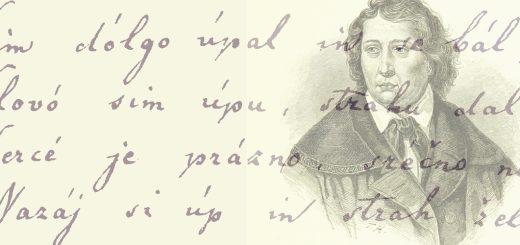 sim dólgo úpal in se bál
slovó sim úpu, strahu dal
sercé je prázno, sréčno n
Nazáj si úp in strah žel